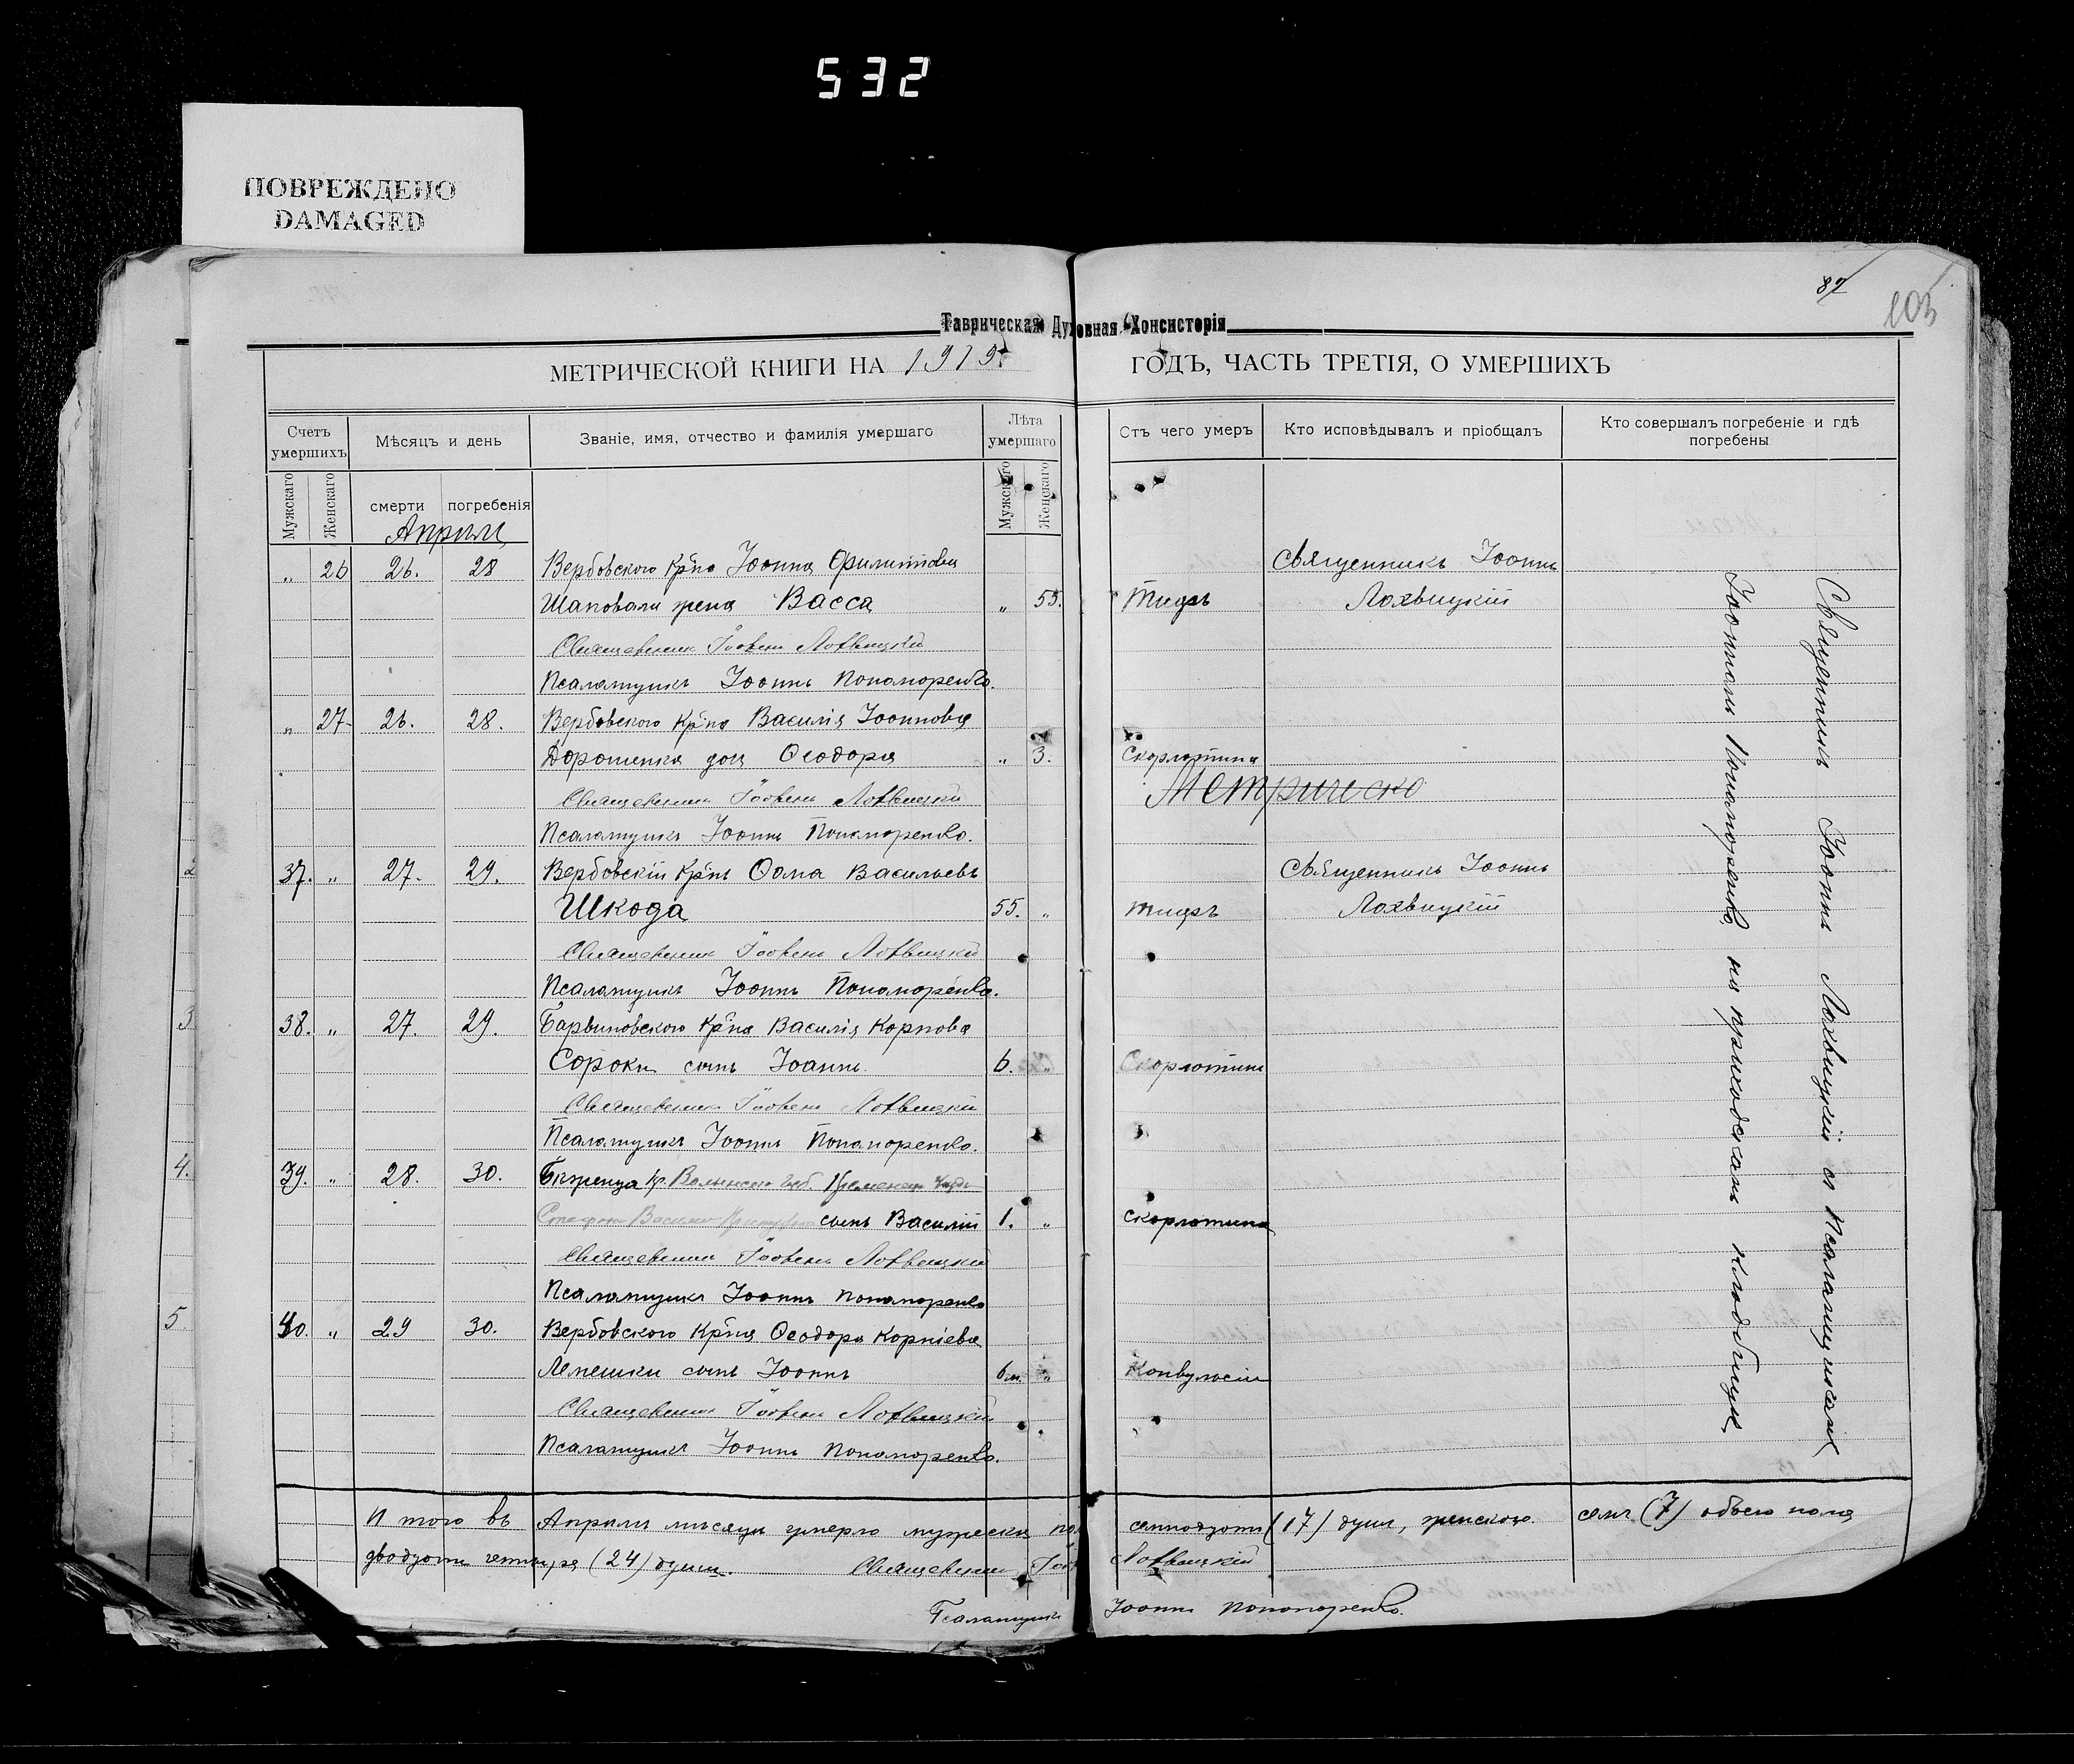 532
ПОВРЕЖДЕНО
DAMAGED
87
105
Таврическая Духовная Консисторія
МЕТРИЧЕСКОЙ КНИГИ НА 1919 ГОДЪ, ЧАСТЬ ТРЕТІЯ, О УМЕРШИХЪ
Счетъ умершихъ
Мѣсяцъ и день
Званіе, имя, отчество и фамилія умершаго
Лѣта умершаго
Отъ чего умеръ
Кто исповѣдывалъ и пріобщалъ
Кто совершалъ погребеніе и гдѣ погребены
Мужскаго
Женскаго
смерти
погребенія
Мужскаго
Женскаго
Апрѣль
„ 26 26. 28 Вербовского Кр-на Іоанна Филиппова Священникъ Іоаннъ
Шаповала жена Васса „ 55. Тифъ Лохвицкій
Священникъ Іоаннъ Лохвицкій
Псаломщикъ Іоаннъ Пономаренко.
„ 27 26. 28. Вербовского Кр-на Василія Іоаннова
Дорошенка дочь Ѳеодора „ 3. Скорлатина
Священникъ Іоаннъ Лохвицкій Метрическо
Псаломщикъ Іоаннъ Пономаренко.
37. „ 27. 29. Вербовскій Кр-нъ Ѳома Васильевъ Священникъ Іоаннъ
Шкода 55. „ тифъ Лохвицкій
Священникъ Іоаннъ Лохвицкій
Псаломщикъ Іоаннъ Пономаренко.
38. „ 27. 29. Барвиновского Кр-на Василія Карпова
Сороки сынъ Іоаннъ. 6. „ Скорлатина
Священникъ Іоаннъ Лохвицкій
Псаломщикъ Іоаннъ Пономаренко.
39. „ 28. 30. Бѣженца Кр. Волынской губ. Кременец. уѣзда
сынъ Василій 1. „ скорлатина
Священникъ Іоаннъ Лохвицкій
Псаломщикъ Іоаннъ Пономаренко
40. „ 29 30. Вербовского Кр-на Ѳеодора Корніева
Лепешки сынъ Іоаннъ 6 м. „ Конвульсіи
Священникъ Іоаннъ Лохвицкій
Псаломщикъ Іоаннъ Пономаренко.
Священникъ Іоаннъ Лохвицкій съ Псаломщикомъ
Іоанномъ Пономаренко на приходскомъ кладбищѣ
Итого въ Апрѣлѣ мѣсяцѣ умерло мужеска пола семнадцать (17) душъ, женского семь (7) обоего пола
двадцать четыре (24) душъ. Священникъ Іоаннъ Лохвицкій
Псаломщикъ Іоаннъ Пономаренко.
2
3
4.
5